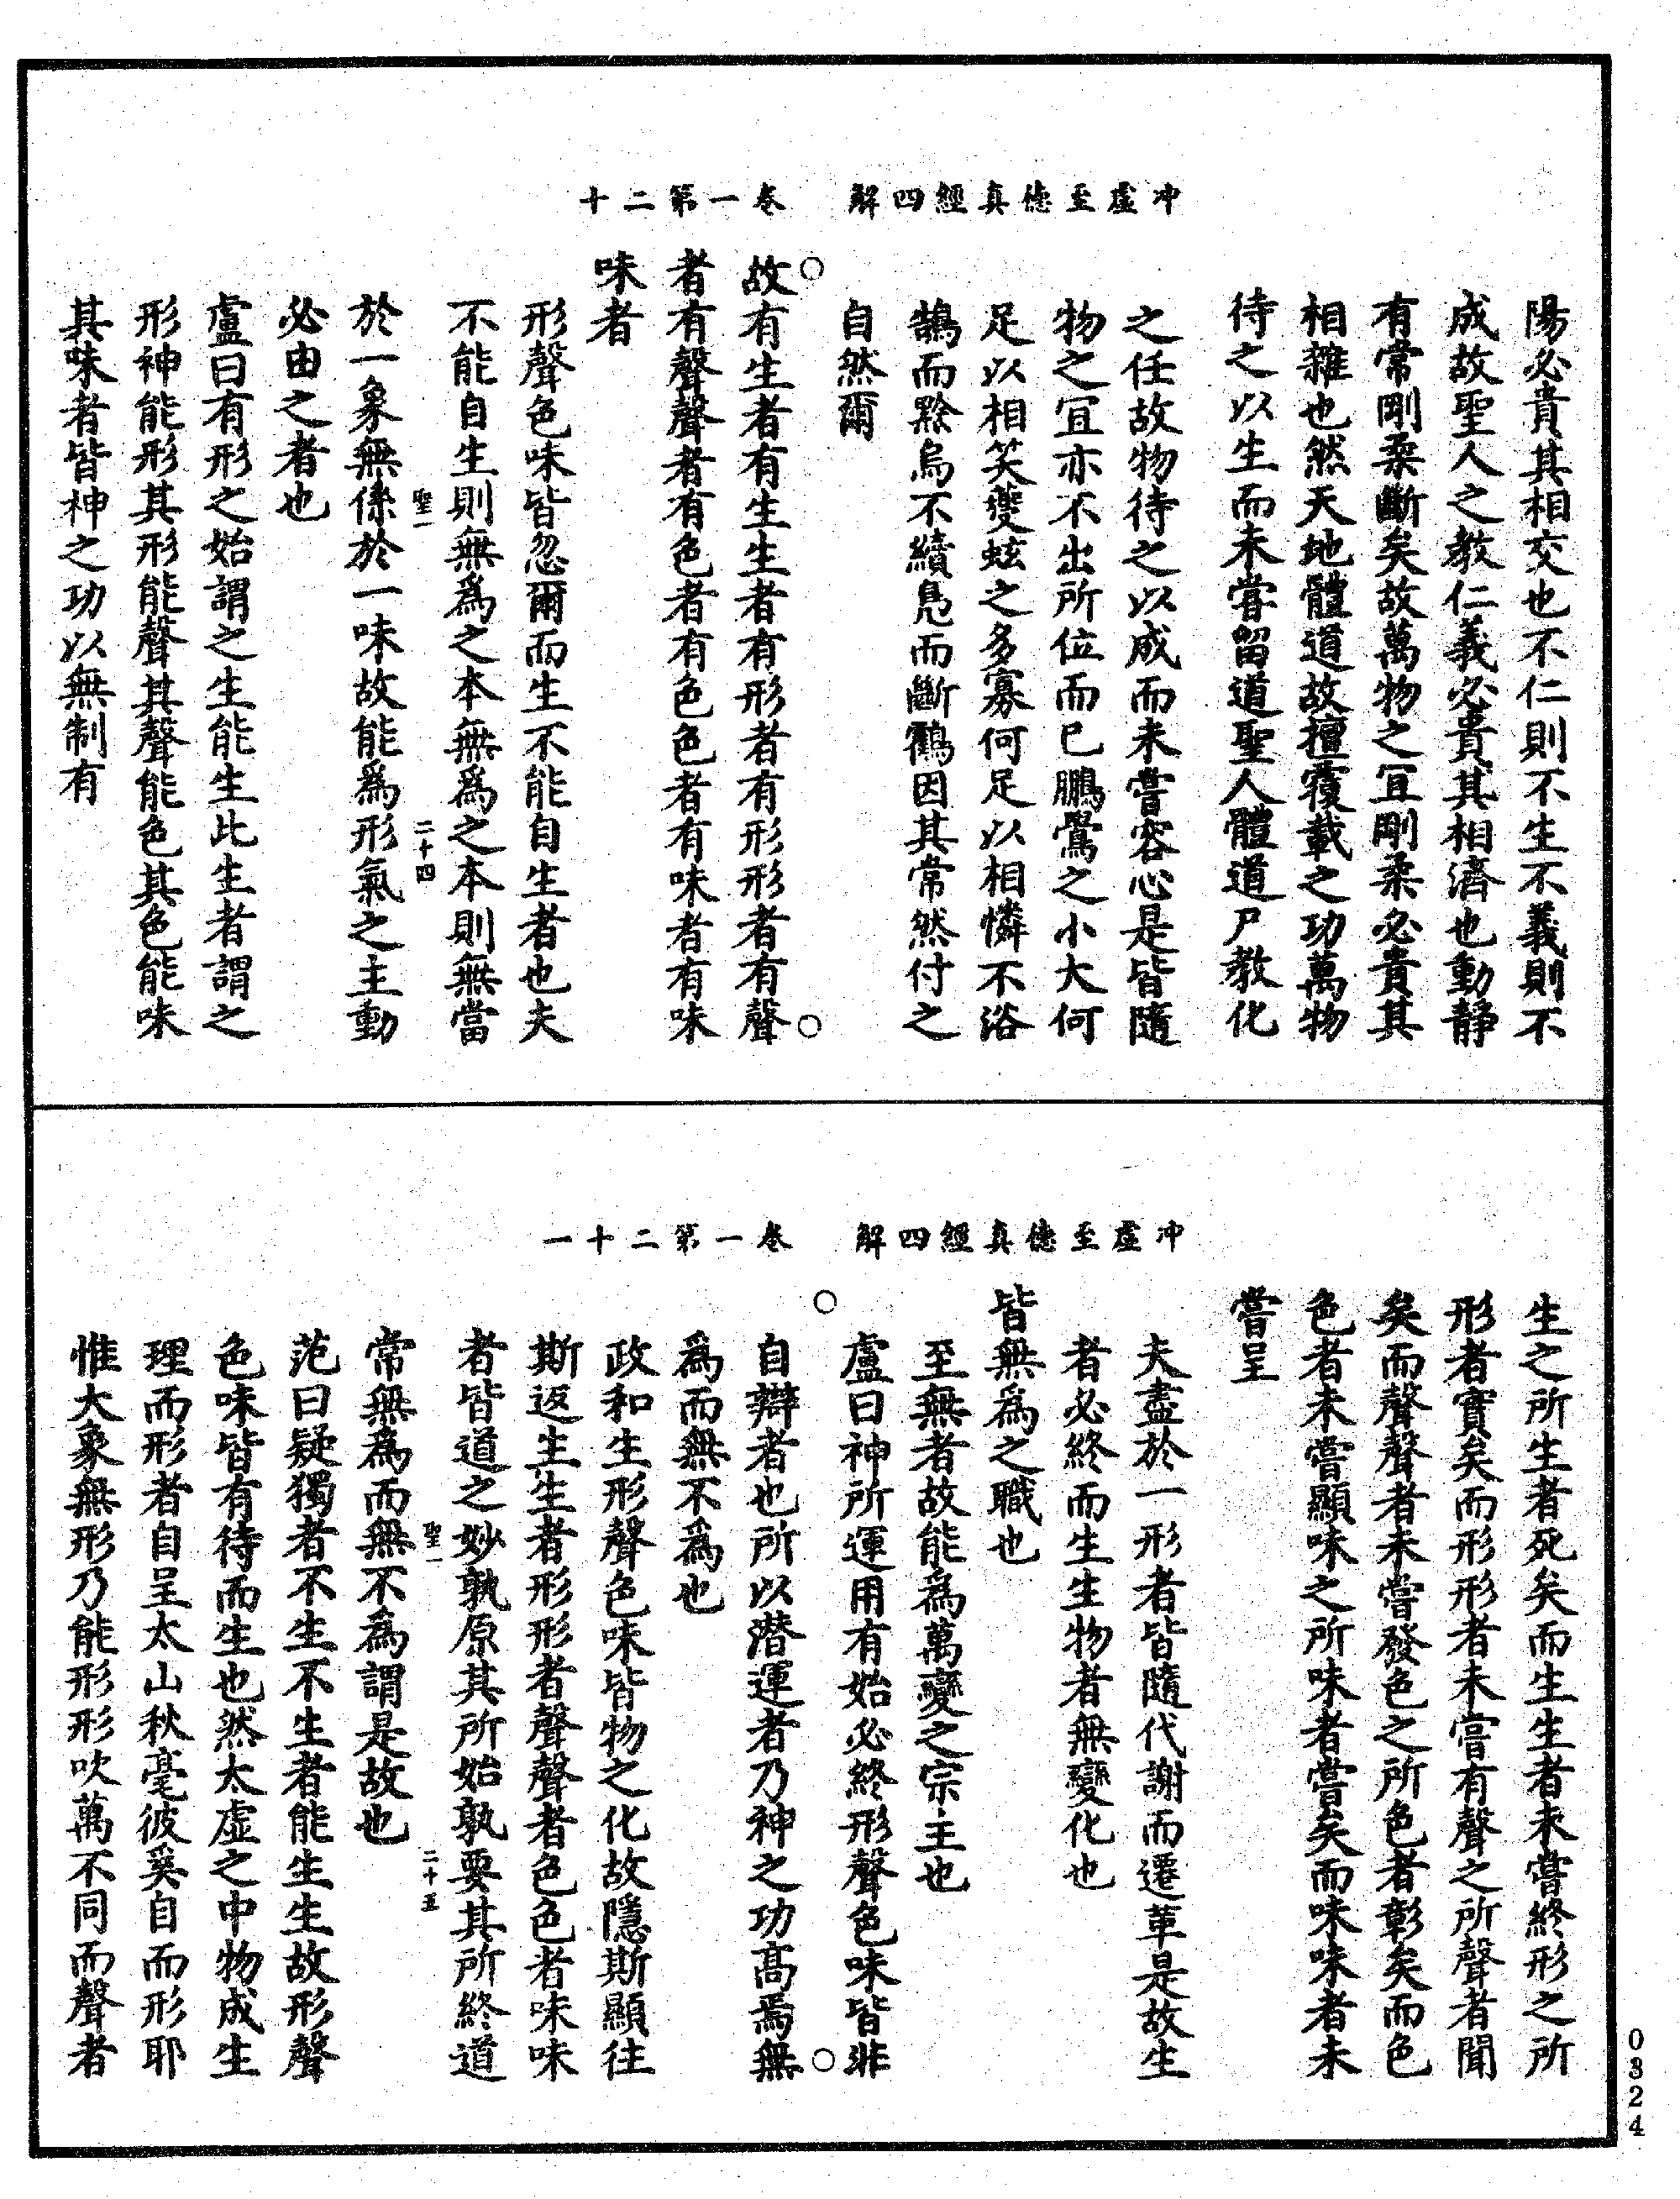 冲虛至德真經四解　卷一第二十
陽必貴其相交也不仁則不生不義則不
成故聖人之教仁義必貴其相濟也動靜
有常剛柔斷矣故萬物之宜剛柔必貴其
相雜也然天地體道故擅覆載之功萬物
待之以生而未嘗留道聖人體道尸教化
之任故物待之以成而未嘗容心是皆隨
物之宜亦不出所位而已鵬鷽之小大何
足以相笑夔蚿之多寡何足以相憐不浴
鵠而黔烏不續鳧而斷鶴因其常然付之
自然爾
故有生者有生生者有形者有形形者有聲
者有聲聲者有色者有色色者有味者有味
味者
形聲色味皆忽爾而生不能自生者也夫
不能自生則無爲之本無爲之本則無當
於一象無係於一味故能爲形氣之主動
聖一
二十四
必由之者也
盧曰有形之始謂之生能生此生者謂之
形神能形其形能聲其聲能色其色能味
其味者皆神之功以無制有
冲虛至德真經四解　卷一第二十一
生之所生者死矣而生生者未嘗終形之所
形者實矣而形形者未嘗有聲之所聲者聞
矣而聲聲者未嘗發色之所色者彰矣而色
色者未嘗顯味之所味者嘗矣而味味者未
嘗呈
夫盡於一形者皆隨代謝而遷革是故生
者必終而生生物者無變化也
皆無爲之職也
至無者故能爲萬變之宗主也
盧曰神所運用有始必終形聲色味皆非
自辯者也所以潜運者乃神之功高焉無
爲而無不爲也
政和生形聲色味皆物之化故隱斯顯往
斯返生生者形形者聲聲者色色者味味
者皆道之妙孰原其所始孰要其所終道
常無爲而無不爲謂是故也
聖一
二十五
范曰疑獨者不生不生者能生生故形聲
色味皆有待而生也然太虛之中物成生
理而形者自呈太山秋毫彼奚自而形耶
惟大象無形乃能形形吹萬不同而聲者
0324